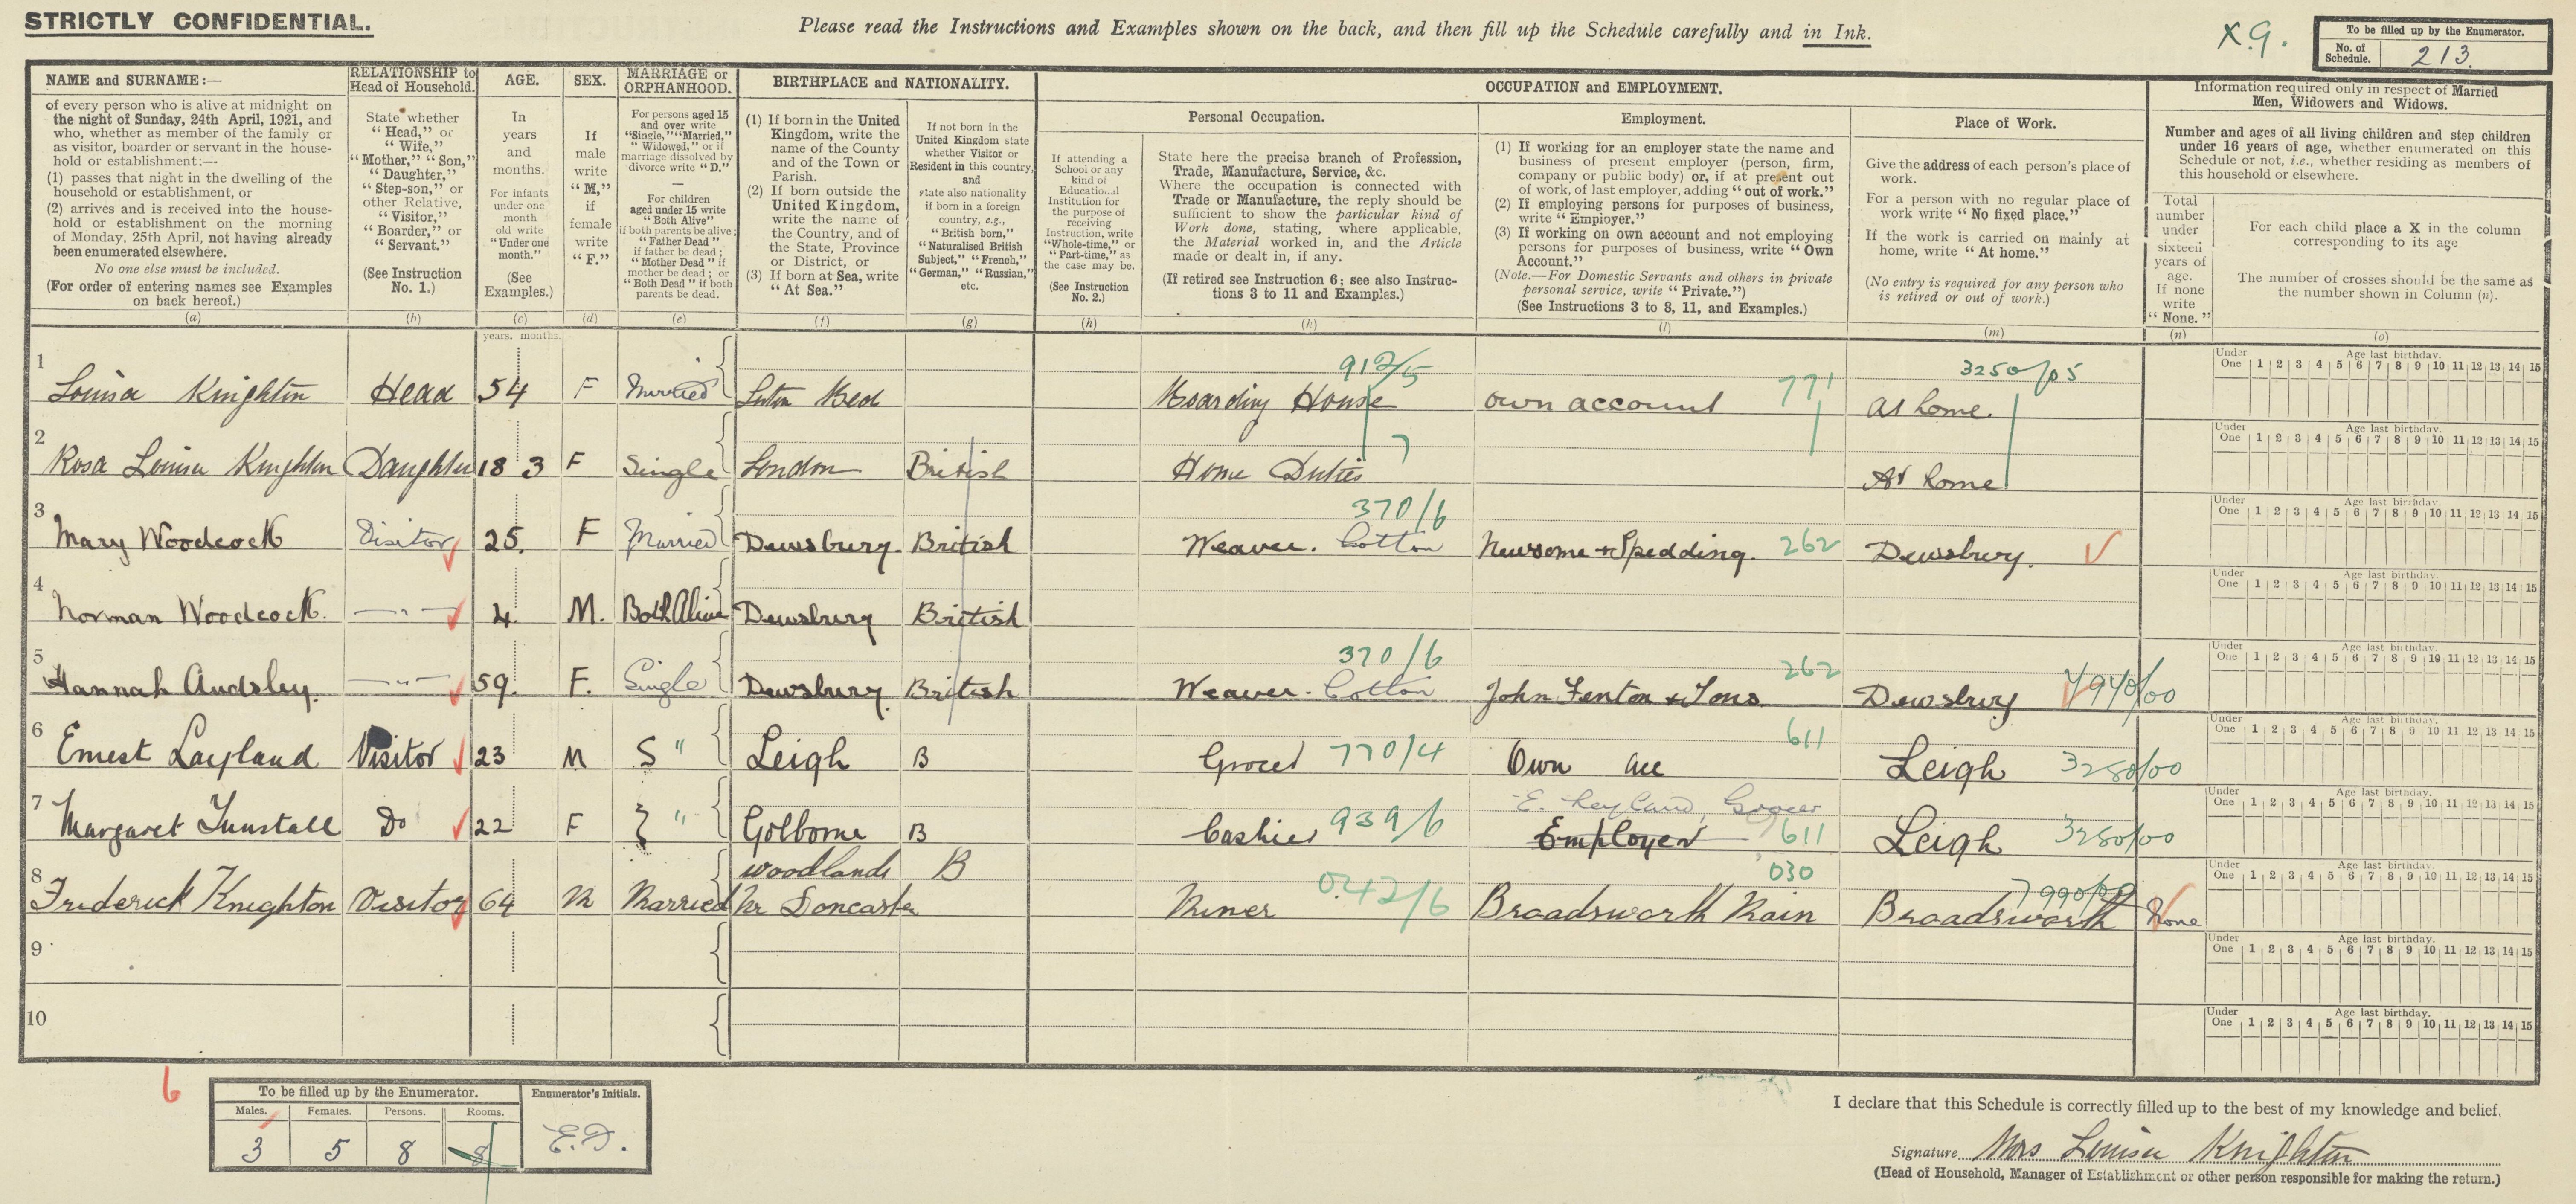 STRICTLY CONFIDENTIAL.
Please read the Instructions and Examples shown on the back, and then fill up the Schedule carefully and in Ink.
X.9.
To be filled up by the Enumerator.
No. of Schedule. 213.
NAME and SURNAME:—
of every person who is alive at midnight on
the night of Sunday, 24th April, 1921, and
who, whether as member of the family or
as visitor, boarder or servant in the house-
hold or establishment:—
(1) passes that night in the dwelling of the
household or establishment, or
(2) arrives and is received into the house-
hold or establishment on the morning
of Monday, 25th April, not having already
been enumerated elsewhere.
No one else must be included.
(For order of entering names see Examples
on back hereof.)
(a)
RELATIONSHIP to
Head of Household.
State whether
"Head," or
"Wife,"
"Mother," "Son,"
"Daughter,"
"Step-son," or
other Relative,
"Visitor,"
"Boarder," or
"Servant."
(See Instruction
No. 1.)
(b)
AGE.
In
years
and
months.
For infants
under one
month
old write
"Under one
month."
(See
Examples.)
(c)
years. months.
SEX.
If
male
write
"M,"
if
female
write
"F."
(d)
MARRIAGE or
ORPHANHOOD.
For persons aged 15
and over write
"Single," "Married,"
"Widowed," or if
marriage dissolved by
divorce write "D."
—
For children
aged under 15 write
"Both Alive"
if both parents be alive;
"Father Dead"
if father be dead;
"Mother Dead" if
mother be dead; or
"Both Dead" if both
parents be dead.
(e)
BIRTHPLACE and NATIONALITY.
(1) If born in the United
Kingdom, write the
name of the County
and of the Town or
Parish.
(2) If born outside the
United Kingdom,
write the name of
the Country, and of
the State, Province
or District, or
(3) If born at Sea, write
"At Sea."
(f)
If not born in the
United Kingdom state
whether Visitor or
Resident in this country,
and
state also nationality
if born in a foreign
country, e.g.,
"British born,"
"Naturalised British
Subject," "French,"
"German," "Russian,"
etc.
(g)
OCCUPATION and EMPLOYMENT.
If attending a
School or any
kind of
Educational
Institution for
the purpose of
receiving
Instruction, write
"Whole-time," or
"Part-time," as
the case may be.
(See Instruction
No. 2.)
(h)
Personal Occupation.
State here the precise branch of Profession,
Trade, Manufacture, Service, &c.
Where the occupation is connected with
Trade or Manufacture, the reply should be
sufficient to show the particular kind of
Work done, stating, where applicable,
the Material worked in, and the Article
made or dealt in, if any.
(If retired see Instruction 6; see also Instruc-
tions 3 to 11 and Examples.)
(k)
Employment.
(1) If working for an employer state the name and
business of present employer (person, firm,
company or public body) or, if at present out
of work, of last employer, adding "out of work."
(2) If employing persons for purposes of business,
write "Employer."
(3) If working on own account and not employing
persons for purposes of business, write "Own
Account."
(Note.—For Domestic Servants and others in private
personal service, write "Private.")
(See Instructions 3 to 8, 11, and Examples.)
(l)
Place of Work.
Give the address of each person's place of
work.
For a person with no regular place of
work write "No fixed place."
If the work is carried on mainly at
home, write "At home."
(No entry is required for any person who
is retired or out of work.)
(m)
Information required only in respect of Married
Men, Widowers and Widows.
Number and ages of all living children and step children
under 16 years of age, whether enumerated on this
Schedule or not, i.e., whether residing as members of
this household or elsewhere.
Total
number
under
sixteen
years of
age.
If none
write
"None."
(n)
For each child place a X in the column
corresponding to its age
The number of crosses should be the same as
the number shown in Column (n).
(o)
912/5 3250/05
1 Louisa Knighton Head 54 F Married Luton Bed Boarding House own account 771 At home.
Under One Age last birthday. 1 2 3 4 5 6 7 8 9 10 11 12 13 14 15
2 Rosa Louisa Knighton Daughter 18 3 F Single London British Home Duties At home
Under One Age last birthday. 1 2 3 4 5 6 7 8 9 10 11 12 13 14 15
370/6
3 Mary Woodcock Visitor 25. F Married Dewsbury British Weaver. Cotton Newsome + Spedding. 262 Dewsbury.
Under One Age last birthday. 1 2 3 4 5 6 7 8 9 10 11 12 13 14 15
4 Norman Woodcock. —"— 4. M. Both Alive Dewsbury British
Under One Age last birthday. 1 2 3 4 5 6 7 8 9 10 11 12 13 14 15
370/6 262
5 Hannah Audsley. —"— 59. F. Single Dewsbury. British Weaver. Cotton John Fenton & Sons Dewsbury 4940/00
Under One Age last birthday. 1 2 3 4 5 6 7 8 9 10 11 12 13 14 15
611
6 Ernest Layland Visitor 23 M S " Leigh B Grocer 770/4 Own acc Leigh 3280/00
Under One Age last birthday. 1 2 3 4 5 6 7 8 9 10 11 12 13 14 15
E. Leyland, Grocer
7 Margaret Tunstall Do 22 F " Golborne B Cashier 939/6 Employer 611 Leigh 3280/00
Under One Age last birthday. 1 2 3 4 5 6 7 8 9 10 11 12 13 14 15
woodlands B 030
8 Frederick Knighton Visitor 64 M Married Nr Doncaster Miner 042/6 Broadsworth Main Broadsworth 7990/00 None
Under One Age last birthday. 1 2 3 4 5 6 7 8 9 10 11 12 13 14 15
9
Under One Age last birthday. 1 2 3 4 5 6 7 8 9 10 11 12 13 14 15
10
Under One Age last birthday. 1 2 3 4 5 6 7 8 9 10 11 12 13 14 15
6
To be filled up by the Enumerator.
Males. Females. Persons. Rooms.
3 5 8 8
Enumerator's Initials.
E.D.
I declare that this Schedule is correctly filled up to the best of my knowledge and belief.
Signature Mrs Louisa Knighton
(Head of Household, Manager of Establishment or other person responsible for making the return.)